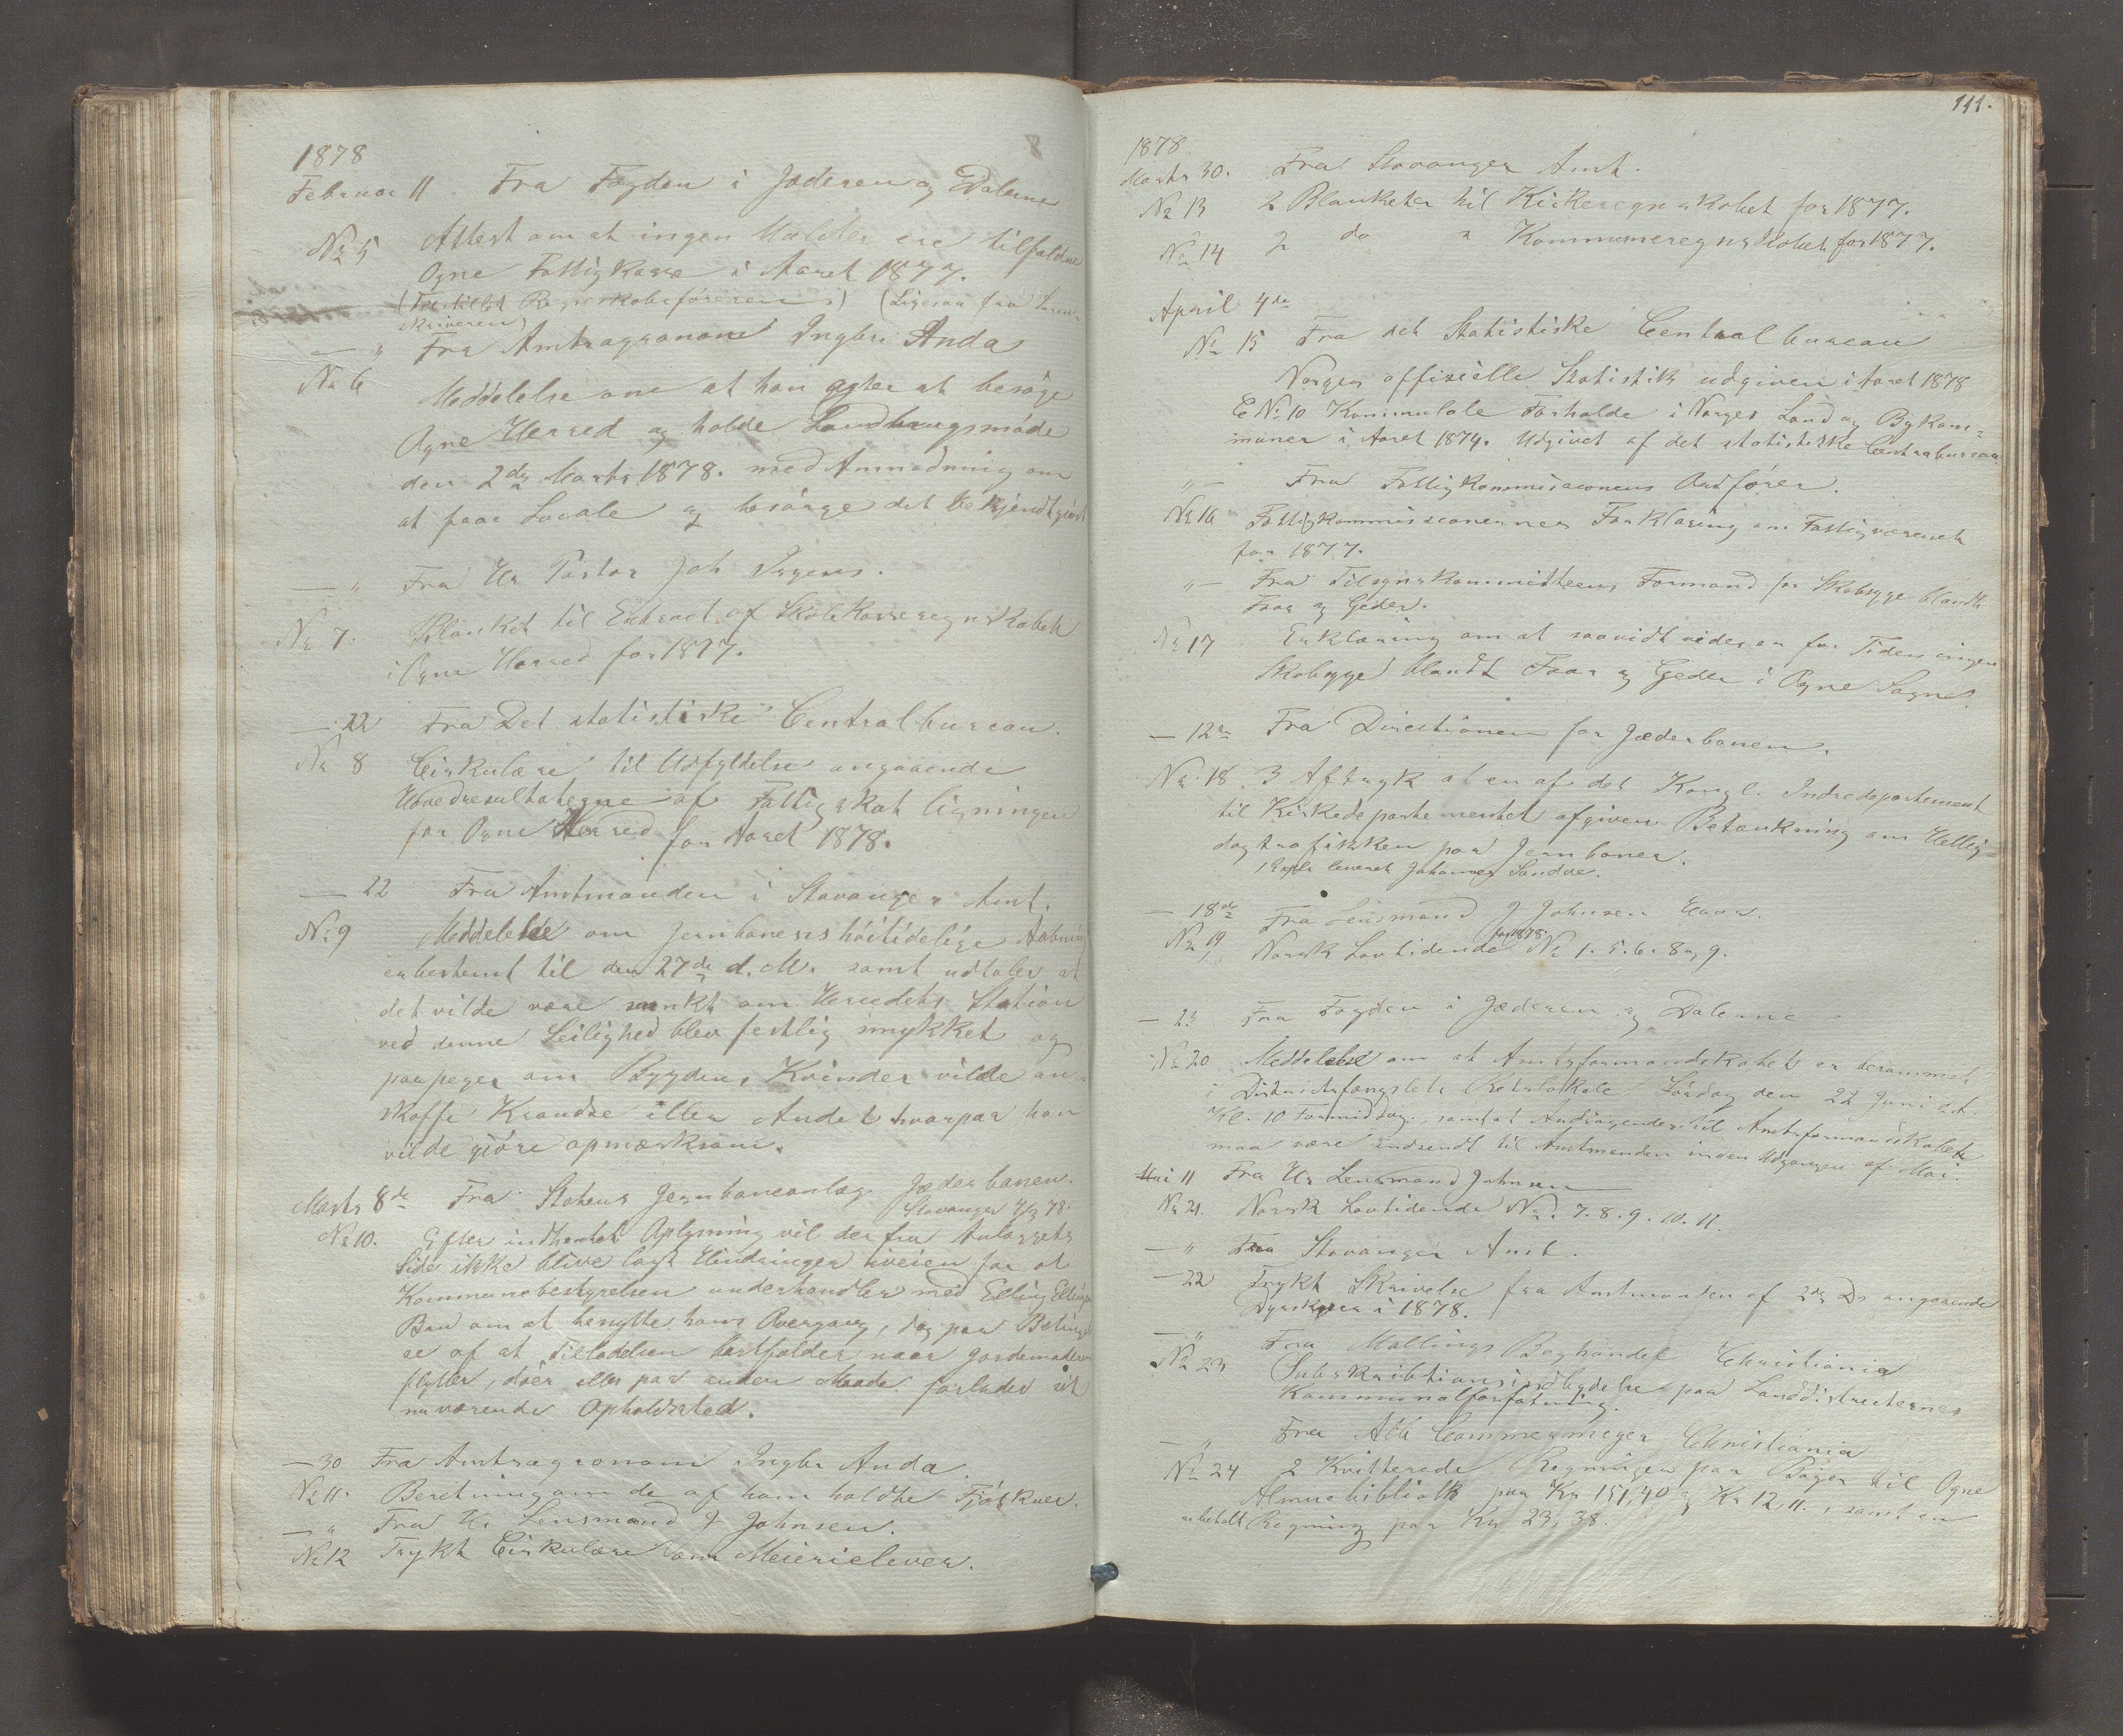 1878
Februar 11 Fra Fogden i Jæderen og Dalerne
No 5 Attest om at ingen Mulcter ere tilfaldne
Ogne Fattigkasse i Aaret 1877.
(Tilstillet Regnskabsføreren.) (Ligesaa fra Soren-
skriveren)
— " Fra Amtsagronom Ingbr. Anda
No 6 Meddelelse om at han agter at besøge
Ogne Herred og holde Landbrugsmøde
den 2de Marts 1878. med Anmodning om
at faar Locale og besørge det bekjendtgjort
— " Fra Hr Pastor Joh
No 7. Blanket til Extract af Skolekasseregnskabet
i Ogne Herred for 1877.
— 22 Fra Det statistiske Centralbureau.
No 8 Cirkulære til Udfyldelse angaaende
Hovedresultaterne af Fattigskatligningen
for Ogne Herred for Aaret 1878.
— 22 Fra Amtmanden i Stavanger Amt.
No 9 Meddelelse om Jernbanens høitidelige Aabning
er bestemt til den 27de d. M. samt udtaler at
det vilde være om Herredets Station
ved denne Leilighed blev festlig smykket og
paapeger om Bygdens Kvinder vilde an-
skaffe Krandse eller Andet hvorpaa han
vilde gjøre opmærksom.
Marts 8de Fra Statens Jernbaneanlæg Jæderbanen.
Stavanger 4/3 78.
No 10. Efter indhentet Oplysning vil der fra Anlæggets
Side ikke blive lagt Hindringer iveien for at
Kommunebestyrelsen underhandler med Elling Ellings
om at benytte hans Overgang, dog paa Beting
se af at Tilladelsen bortfalder naar Jordemoderen
flytter, døer eller paa anden Maade forlader sit
nuværende Opholdssted.
— 30 Fra Amtsagronom Ingbr Anda
No 11. Beretning om de af ham holdte Fjøskuer.
— " Fra Hr Lensmand J Johnsen.
No 12 Trykt Cirkulære om Meierielever.
111.
1878
Marts 30. Fra Stavanger Amt.
No 13 2 Blanketer til Kirkeregnskabet for 1877.
No 14 2 do " Kommuneregnskabet for 1877.
April 4de
No 15 Fra det Statistiske Centralbureau
Norges officielle Statistik udgiven i Aaret 1878
C No 10 Kommunale Forholde i Norges Land og Bykom-
muner i Aaret 1874. Udgivet af det statistiske Centralbureau
" — Fra Fattigkommissionens Ordfører.
No 16 Fattigkommissionernes Forklaring om Fattigvæsenet
for 1877.
" — Fra Tilsynskommitteens Formand for Skabsyge blandt
Faar og Geder.
No 17 Erklæring om at saavidt vides er for Tiden ingen
Skabsyge blandt Faar og Geder i Ogne Sogn.
— 12te Fra Directionen for Jæderbanen.
No 18. 3 Aftryk at en af det Kongl. Indredepartement
til Kirkedepartementet afgiven Betænkning om Hellig-
dagtrafikken paa Jernbaner.
1 Expl. leveret Johannes
— 18de Fra Lensmand J Johnsen Haar.
No 19 Norsk Lovtidende for 1878. No 1. 5. 6. 8 og 9.
— 23 Fra Fogden i Jæderen og Dalerne
No 20 Meddelelse om at Amtsformandskabet er berammet
i Districtsfængslets Retslokale Lørdag den 22 Juni d.A.
Kl. 10 Formiddag. samt at Andragender til Amtsformandskabet
maa være indsendt til Amtmanden inden Udgangen af Mai.
Mai 11 Fra Hr Lensmand Johnsen
No 21. Norsk Lovtidende No. 7. 8. 9. 10. 11.
— " Fra Stavanger Amt.
— 22 Trykt Skrivelse fra Amtmanden af 2de Ds angaaende
Dyrskuer i 1878.
— " Fra Mallings Boghandel Christiania
No 23 Subskribtionsindbydelse paa Landdistricternes
Kommunalforfatning.
— " Fra Alb Cammermeyer Christiania
No 24 2 Kvitterede Regninger paa Bøger til Ogne
Almuebibliotk paa Kr 151,40 og Kr 12,11., samt en
ubetalt Regning paa Kr 23,38.